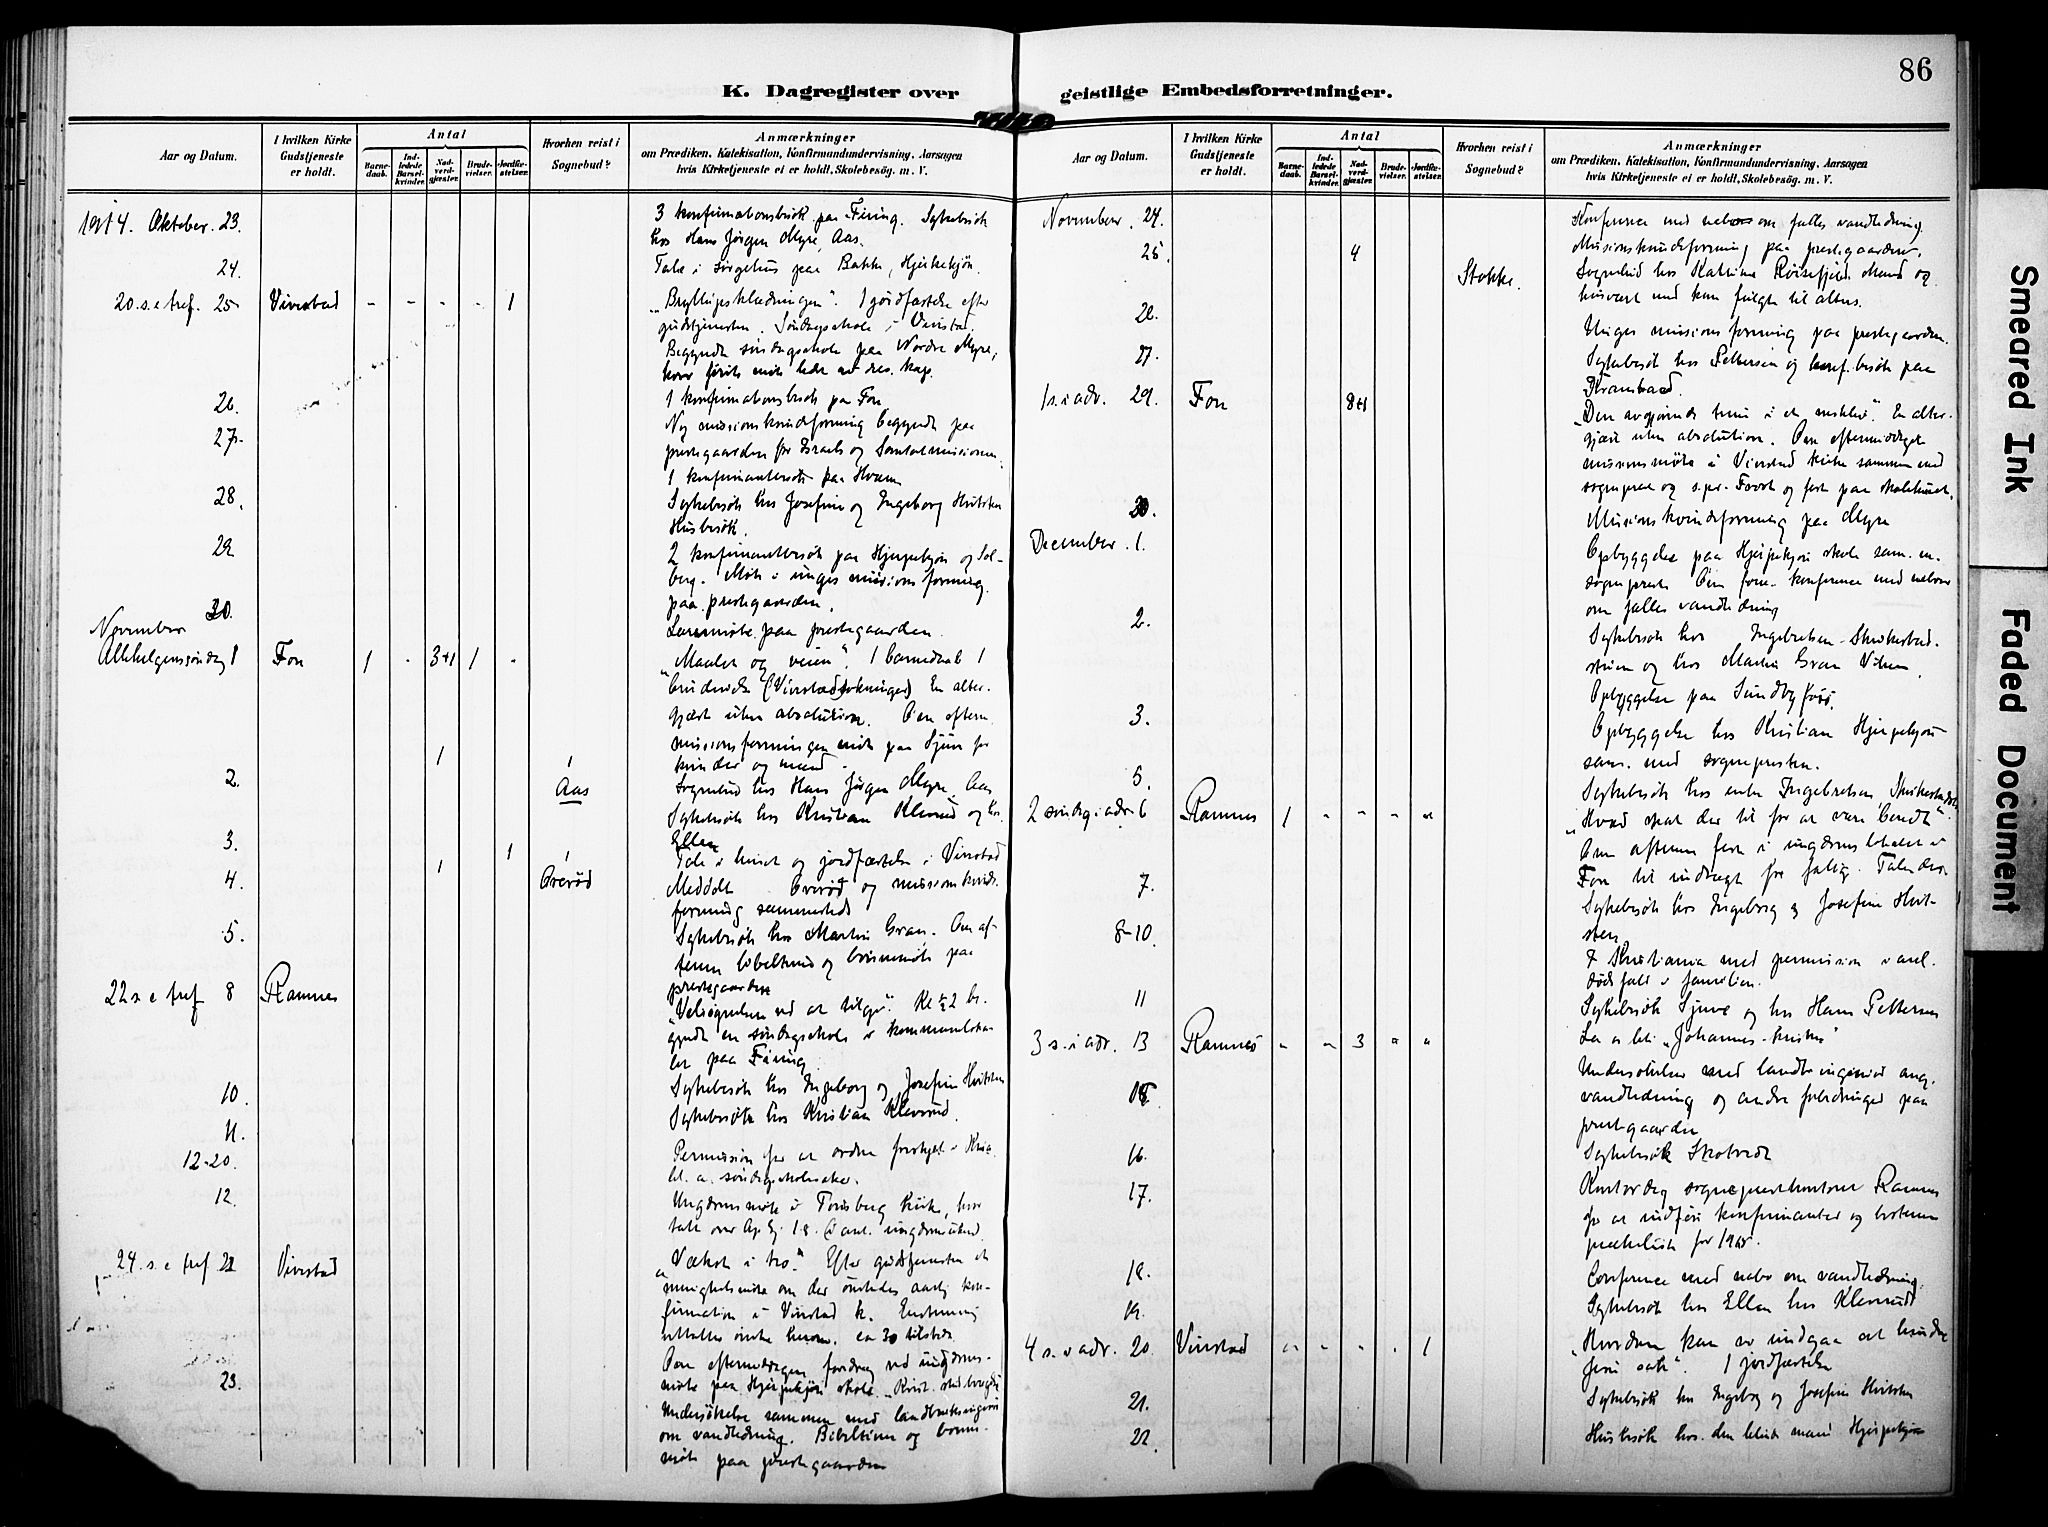 86
K. Dagregister over geistlige Embedsforretninger.
Aar og Datum.
I hvilken Kirke Gudstjeneste er holdt.
Antal
Barne-daab.
Ind-ledede Barsel-kvinder.
Nad-verd-gjæster.
Brude-vielser.
Jordfæ-stelser.
Hvorhen reist i Sognebud?
Anmærkninger
om Prædiken, Katekisation, Konfirmandundervisning, Aarsagen
hvis Kirketjeneste ei er holdt, Skolebesøg. m. V.
1914. Oktober. 23. 3 konfirmationsbesøk paa Firing. Sykebesøk
hos Hans Jørgen Myre, Aas.
24. Tale i sørgehus paa Bakke, Hjerpekjøn.
20. s. e. tref. 25 Vivestad - - - - 1 „Bryllupsklædningen". 1 jordfæstelse efter
gudstjenesten. Søndagsskole i Vivestad.
Begyndte søndagsskole paa Nordre Myre,
26. 1 konfirmationsbesøk paa Fon
27. Ny missionskvindeforening begyndt paa
prestegaarden for Israels og Santalmissionen.
1 konfirmantbesøk paa Hvam
28. Sykebesøk hos Josefine og Ingeborg Hvitsten
Husbesøk.
29. 2 konfirmantbesøk paa Hjerpekjøn og Sol-
berg. Møte i unges missionsforening
paa prestegaarden.
30. Lærermøte paa prestegaarden.
November
Allehelgenssøndag 1 Fon 1 - 3+1 1 - „Maalet og veien". 1 barnedaab 1
brudevielse (Vivestadsokninger) En alter-
gjæst uten absolution. Om efterm.
missionsforeningen møte paa Sjue for
kvinder og mænd.
2. 1 1 Aas Sognebud hos Hans Jørgen Myre, Aas
Sykebesøk hos Kristian Klevrud og hos
Ellen
3. 1 Tale i huset og jordfæstelse i Vivestad
4. 1 1 Overød Meddelt Overød og missionskvinde-
forening sammesteds
5. Sykebesøk hos Martin Gran. Om af-
tenen bibeltime og bønnemøte paa
prestegaarden
22 s. e tref 8 Ramnes „Velsignelsen ved at tilgi". Kl ½2 be-
gyndt en søndagsskole i kommuneloka-
let paa Firing.
10. Sykebesøk hos Ingeborg og Josefine Hvitsten
11. Sykebesøk hos Kristian Klevrud.
12-20. Permission for at ordne forskjel. i Kr.a
bl. a. søndagsskolesaker.
12. Ungdomsmøte i Tønsberg kirke, hvor
tale over Ap. Gj. 1.8.
24. s. e tref 22 Vivestad „Vækst i tro." Efter gudstjenesten et
menighetsmøte om der ønskedes aarlig kon-
firmation i Vivestad k. Enstemmig
uttaltes ønske herom. ca 30 tilstede.
Om eftermiddagen foredrag ved ungdoms-
møte paa Hjerpekjøn skole.
23. Undersøkelse sammen med landbruksingeniør
om vandledning. Bibeltime og bønne-
møte paa prestegaarden
Aar og Datum.
I hvilken Kirke Gudstjeneste er holdt.
Antal
Barne-daab.
Ind-ledede Barsel-kvinder.
Nad-verd-gjæster.
Brude-vielser.
Jordfæ-stelser.
Hvorhen reist i Sognebud?
Anmærkninger
om Prædiken, Katekisation, Konfirmandundervisning, Aarsagen
hvis Kirketjeneste ei er holdt, Skolebesøg. m. V.
November. 24. Konference med naboer om fælles vandledning.
Missionskvindeforening paa prestegaarden.
25. 4 Stokke. Sognebud hos Katrine Mand og
husvært med kone fulgte til alters.
26. Unges missionsforening paa prestegaarden.
27. Sykebesøk hos Pettersen og konf. besøk paa
1 s. i adv. 29. Fon 8+1 „Den avgjørende time i et menskeliv". En alter-
gjæst uten absolution. Om eftermiddagen
missionsmøte i Vivestad kirke sammen med
sogneprest og s.pr. og fest paa skolehuset.
30. Missionskvindeforening paa Myre
December. 1. Opbyggelse paa Hjerpekjøn skole sam. m.
sogneprest. Om form. konference med naboer
om fælles vandledning
2. Sykebesøk hos Ingebretsen
og hos Martin Gran
Opbyggelse paa Sundbyfoss.
3. Opbyggelse hos Kristian Hjerpekjøn
sam. med sognepresten.
5. Sykebesøk hos enke Ingebretsen
2 søndag i adv. 6 Ramnes 1 - - - - „Hvad skal der til for at være beredt".
Om aftenen fest i ungdomslokalet i
Fon til indtægt for
7. Sykebesøk hos Ingeborg og Josefine Hvit-
sten
8-10. I Kristiania med permission i anl.
dødsfald i familien.
11 Sykebesøk Sjue og hos Hans Pettersen
3 s. i adv. 13 Ramnes - - 3 - - „Johannes-
15. Undersøkelse med landbr.ingeniør ang.
vandledning og andre forbedringer paa
prestegaarden
16. Sykebesøk Skotvedt
17. Kontordag sogneprestkontoret Ramnes
for at indføre konfirmanter og bestemme
prækeliste for 1915.
18. Conference med nabo om vandledning.
19. Sykebesøk hos Ellen hos Klevrud
4 s. i adv. 20. Vivestad - - - - 1 „Hvordan kan vi undgaa at hindre
Jesu sak". 1 jordfæstelse
21. Sykebesøk hos Ingeborg og Josefine Hvitsten
22. Husbesøk hos den blinde mand Hjerpekjøn
Smeared Ink
Faded Document